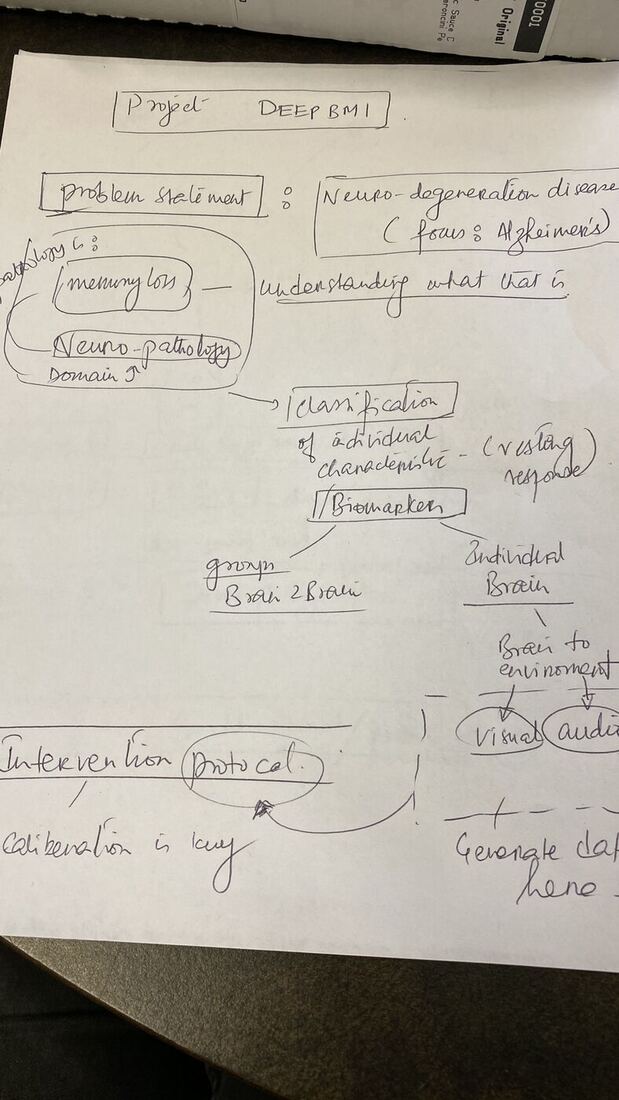 0001
Original
c Sauce C
aroncini Pe
Project DEEP BMI
Problem statement : Neuro-degeneration disease
(focus: Alzheimer's)
pathology is:
memory loss — understanding what that is
Neuro-pathology
Domain
classification
of individual
characteristic - (resting
response)
Biomarkers
groups
Brain 2 Brain
Individual
Brain
Brain to
enviroment
visual audio
Intervention protocal.
caliberation is key
Generate dat
here